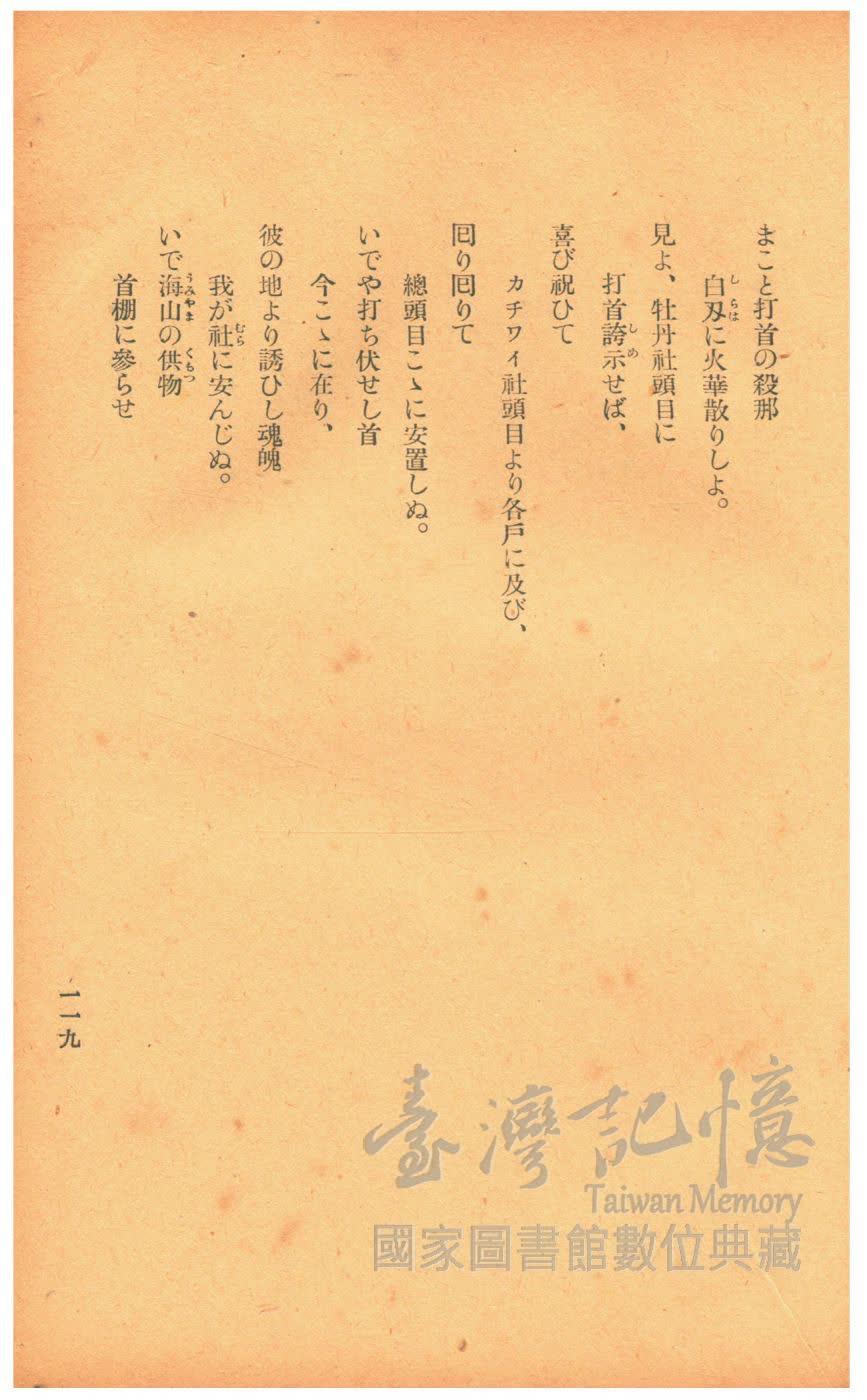 まこと打首の殺那
白刄に火華散りしよ。
見よ、牡丹社頭目に
打首誇示せば、
喜び祝ひて
カチワイ社頭目より各戸に及び、
囘り囘りて
總頭目こゝに安置しぬ。
いでや打ち伏せし首
今こゝに在り、
彼の地より誘ひし魂魄
我が社に安んじぬ。
いで海山の供物
首棚に參らせ
一一九
臺灣記憶
Taiwan Memory
國家圖書館數位典藏